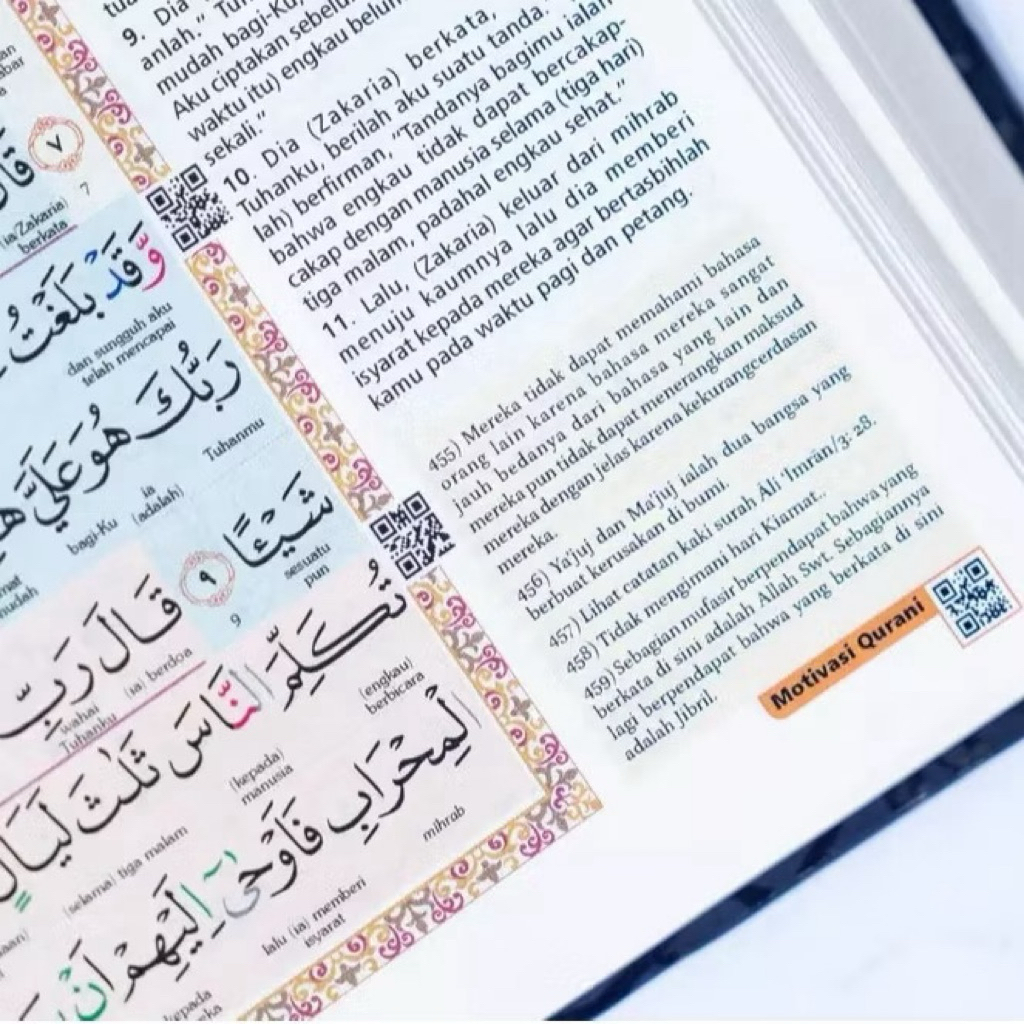 ٧
7
قَالَ
(ia/Zakaria)
berkata
وَّقَدْ بَلَغْتُ
dan sungguh aku
telah mencapai
رَبُّكَ هُوَ عَلَيَّ
Tuhanmu
ia
(adalah)
bagi-Ku
شَيْـًٔا ٩
sesuatu
pun
9
قَالَ رَبِّ
(ia) berdoa
wahai
Tuhanku
تُكَلِّمَ النَّاسَ ثَلٰثَ لَيَالٍ
(engkau)
berbicara
(kepada)
manusia
(selama) tiga malam
الْمِحْرَابِ فَاَوْحٰٓى اِلَيْهِمْ اَنْ
mihrab
lalu (ia) memberi
isyarat
9. Dia
anlah." Tuh
mudah bagi-Ku,
Aku ciptakan sebelum
waktu itu) engkau belum
sekali."
10. Dia (Zakaria) berkata,
Tuhanku, berilah aku suatu tanda."
lah) berfirman, "Tandanya bagimu ialah
bahwa engkau tidak dapat bercakap-
cakap dengan manusia selama (tiga hari)
tiga malam, padahal engkau sehat."
11. Lalu, (Zakaria) keluar dari mihrab
menuju kaumnya lalu dia memberi
isyarat kepada mereka agar bertasbihlah
kamu pada waktu pagi dan petang.
455) Mereka tidak dapat memahami bahasa
orang lain karena bahasa mereka sangat
jauh bedanya dari bahasa yang lain dan
mereka pun tidak dapat menerangkan maksud
mereka dengan jelas karena kekurangcerdasan
mereka.
456) Ya'juj dan Ma'juj ialah dua bangsa yang
berbuat kerusakan di bumi.
457) Lihat catatan kaki surah Āli 'Imrān/3: 28.
458) Tidak mengimani hari Kiamat..
459) Sebagian mufasir berpendapat bahwa yang
berkata di sini adalah Allah Swt. Sebagiannya
lagi berpendapat bahwa yang berkata di sini
adalah Jibril.
Motivasi Qurani